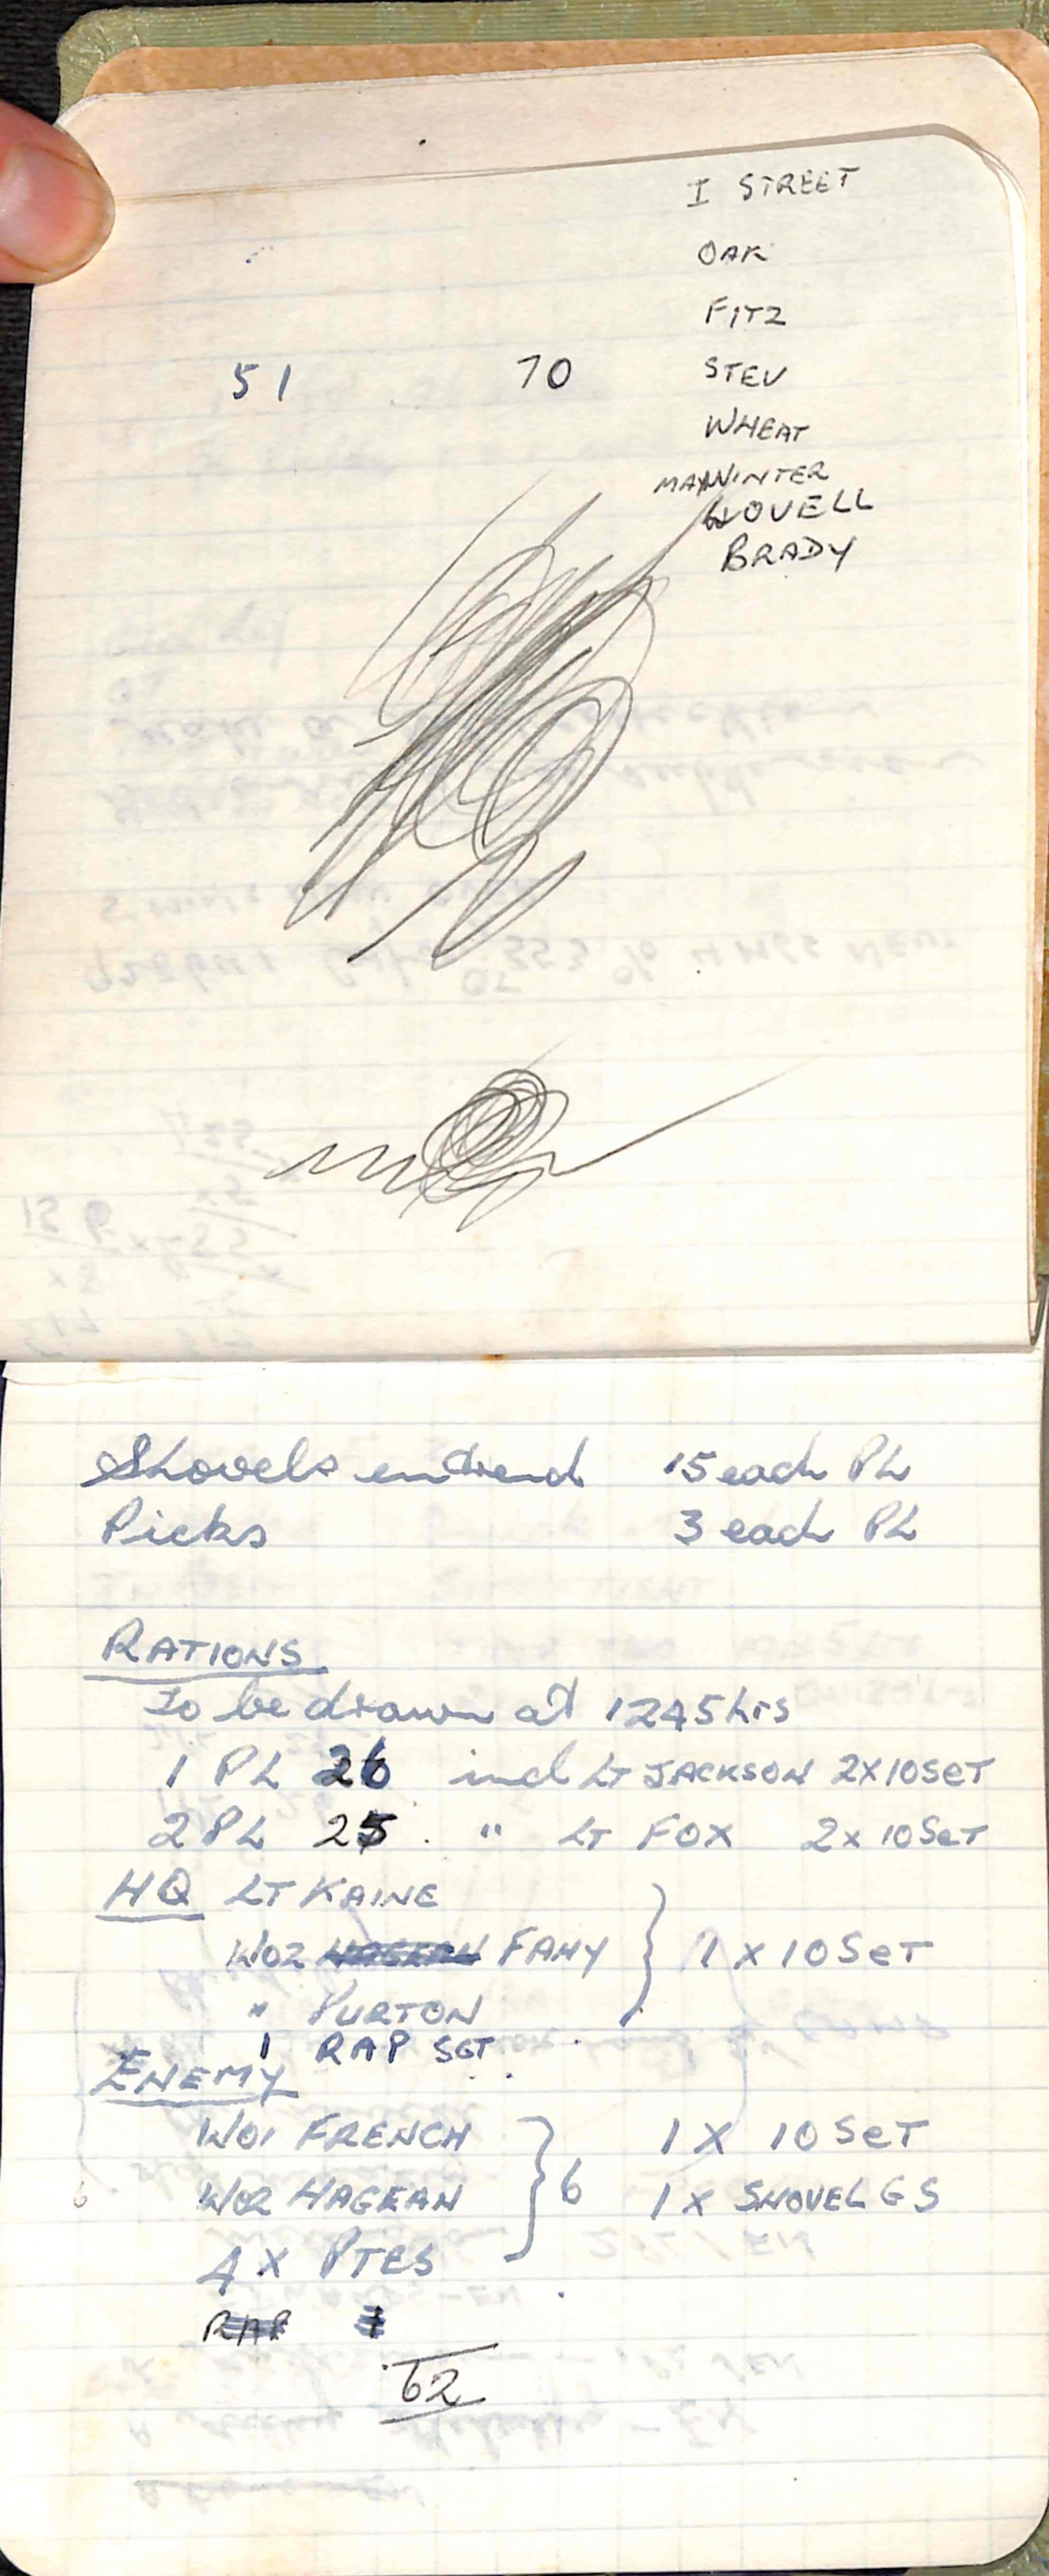 I STREET
OAK
FITZ
51 70 STEV
WHEAT
MAYWINTER
LOVELL
BRADY
Shovels 15 each PL
Picks 3 each PL
RATIONS
To be drawn at 1245 hrs
1 PL 26 incl LT JACKSON 2X10SET
2 PL 25 " LT FOX 2x10SET
HQ LT KAINE
WO2 FAHY 1 X 10 SET
" PURTON
1 RAP SGT
ENEMY
WO1 FRENCH 1 X 10 SET
WO2 HAGEAN 6 1 X SHOVEL GS
4 X PTES
RAP 1
62